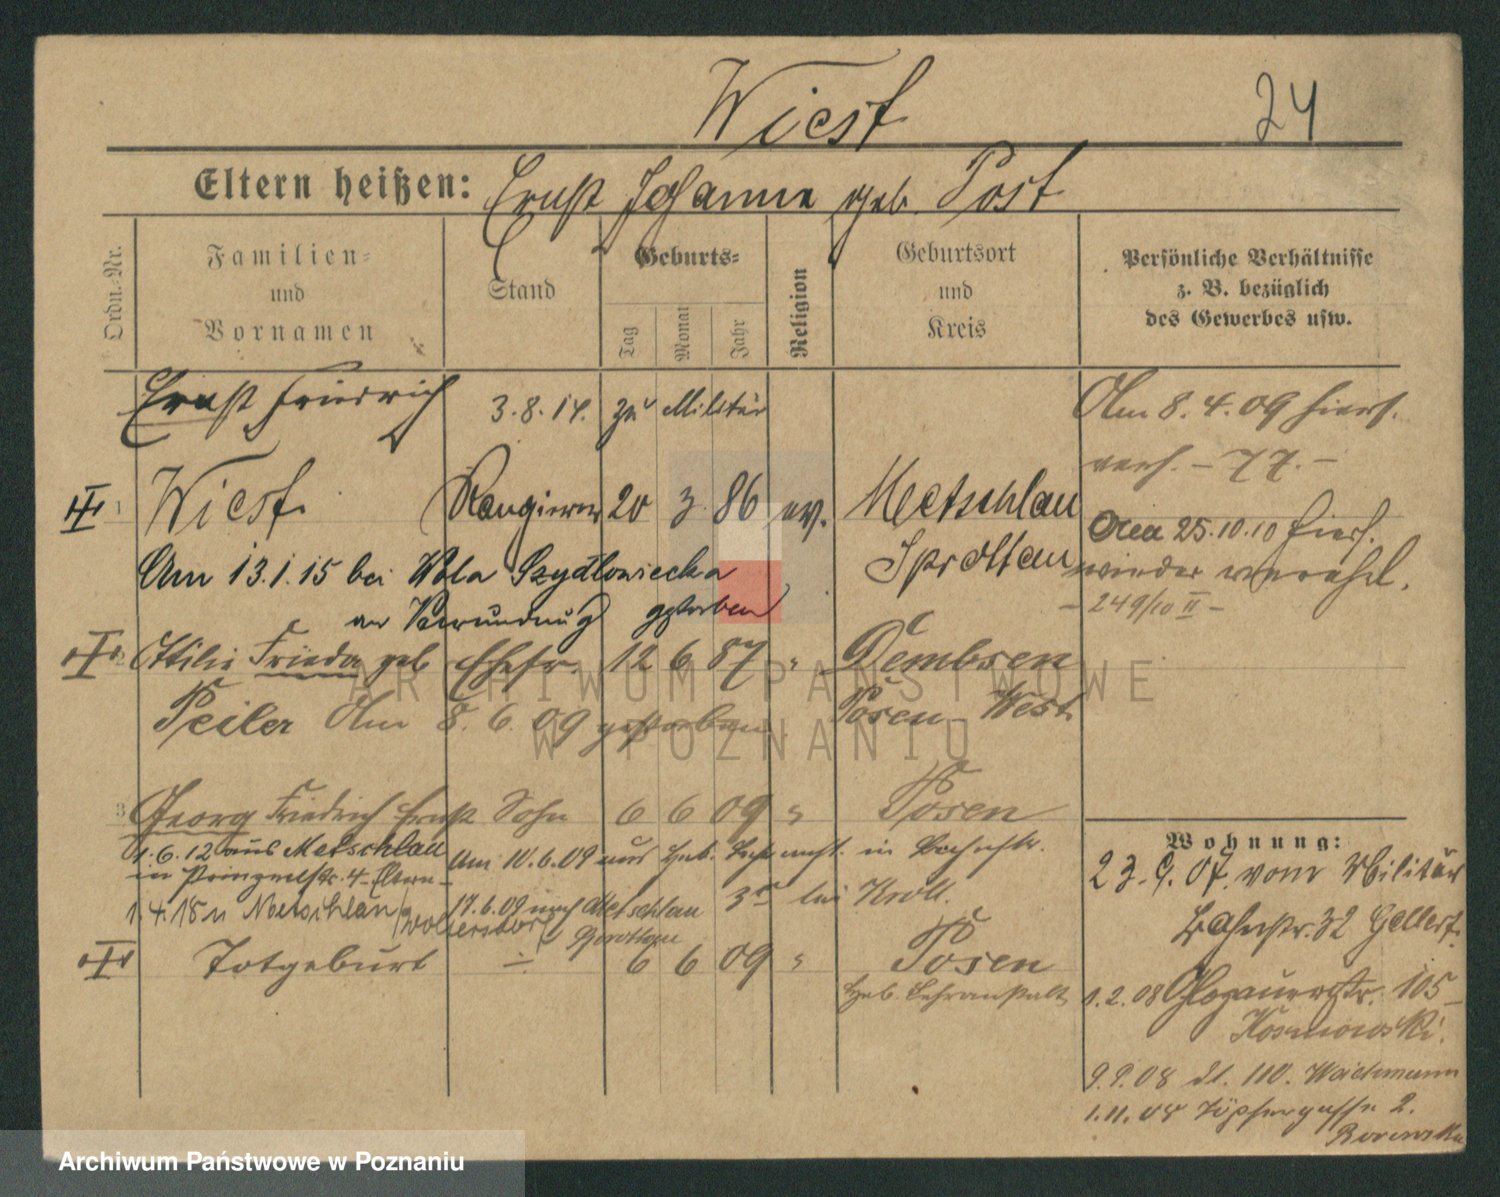 Wiesf
24
Eltern heißen: Ernst Johanne geb. Post
Ordn.-Nr.
Familien-
und
Vornamen
Stand
Geburts-
Tag
Monat
Jahr
Religion
Geburtsort
und
Kreis
Persönliche Verhältnisse
z. B. bezüglich
des Gewerbes usw.
Ernst Friedrich 3.8.14. zu Militär
Am 8.4.09 hiers.
verh. – 77. –
1 Wiesf. Rangierer 20 3. 86 ev. Metschlau
Sprottau
Am 25.10.10 hiers.
wieder verehel.
– 249/10 II –
Am 13.1.15 bei Wola Szydlowiecka
an Verwundung gestorben
2 Ottilie Frieda geb Ehefr. 12 6 87 " Dembsen
Peiler Am 8.6.09 gestorben Posen West
3 Georg Friedrich Ernst Sohn 6 6 09 " Posen
1.6.12 aus Metschlau
in Prinzenstr. 4 Eltern –
1.4.15 n Metschlau / Woltersdorf
Am 10.6.09 aus Heb. in Bahnstr.
32 bei Kroll.
17.6.09 nach Metschlau
Totgeburt ÷ 6 6 09 " Posen
Heb. Lehranstalt
Wohnung:
23.9.07. vom Militär
Bahnstr. 32 Gellert.
1.2.08 Glogauerstr. 105 –
Kosmowski.
9.9.08 dt. 110. Wachmann
1.11.08 Töpfergasse 2.
ARCHIWUM PAŃSTWOWE
W POZNANIU
Archiwum Państwowe w Poznaniu